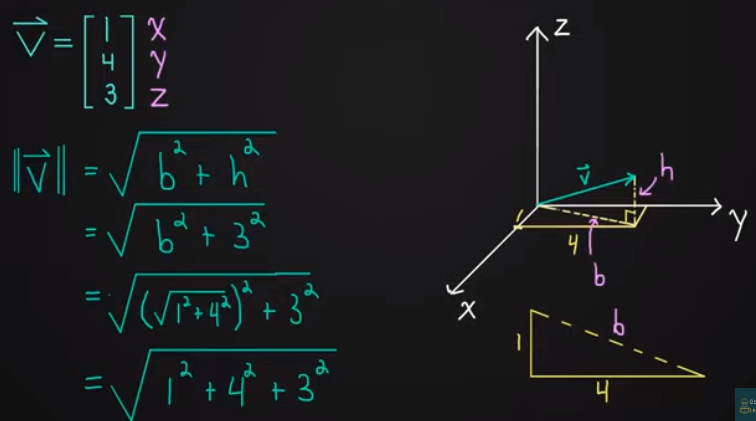 v⃗ = [1 4 3] x y z
‖v⃗‖ = √(b² + h²)
= √(b² + 3²)
= √((√(1² + 4²))² + 3²)
= √(1² + 4² + 3²)
z
v⃗
h
y
1
4
b
x
b
1
4